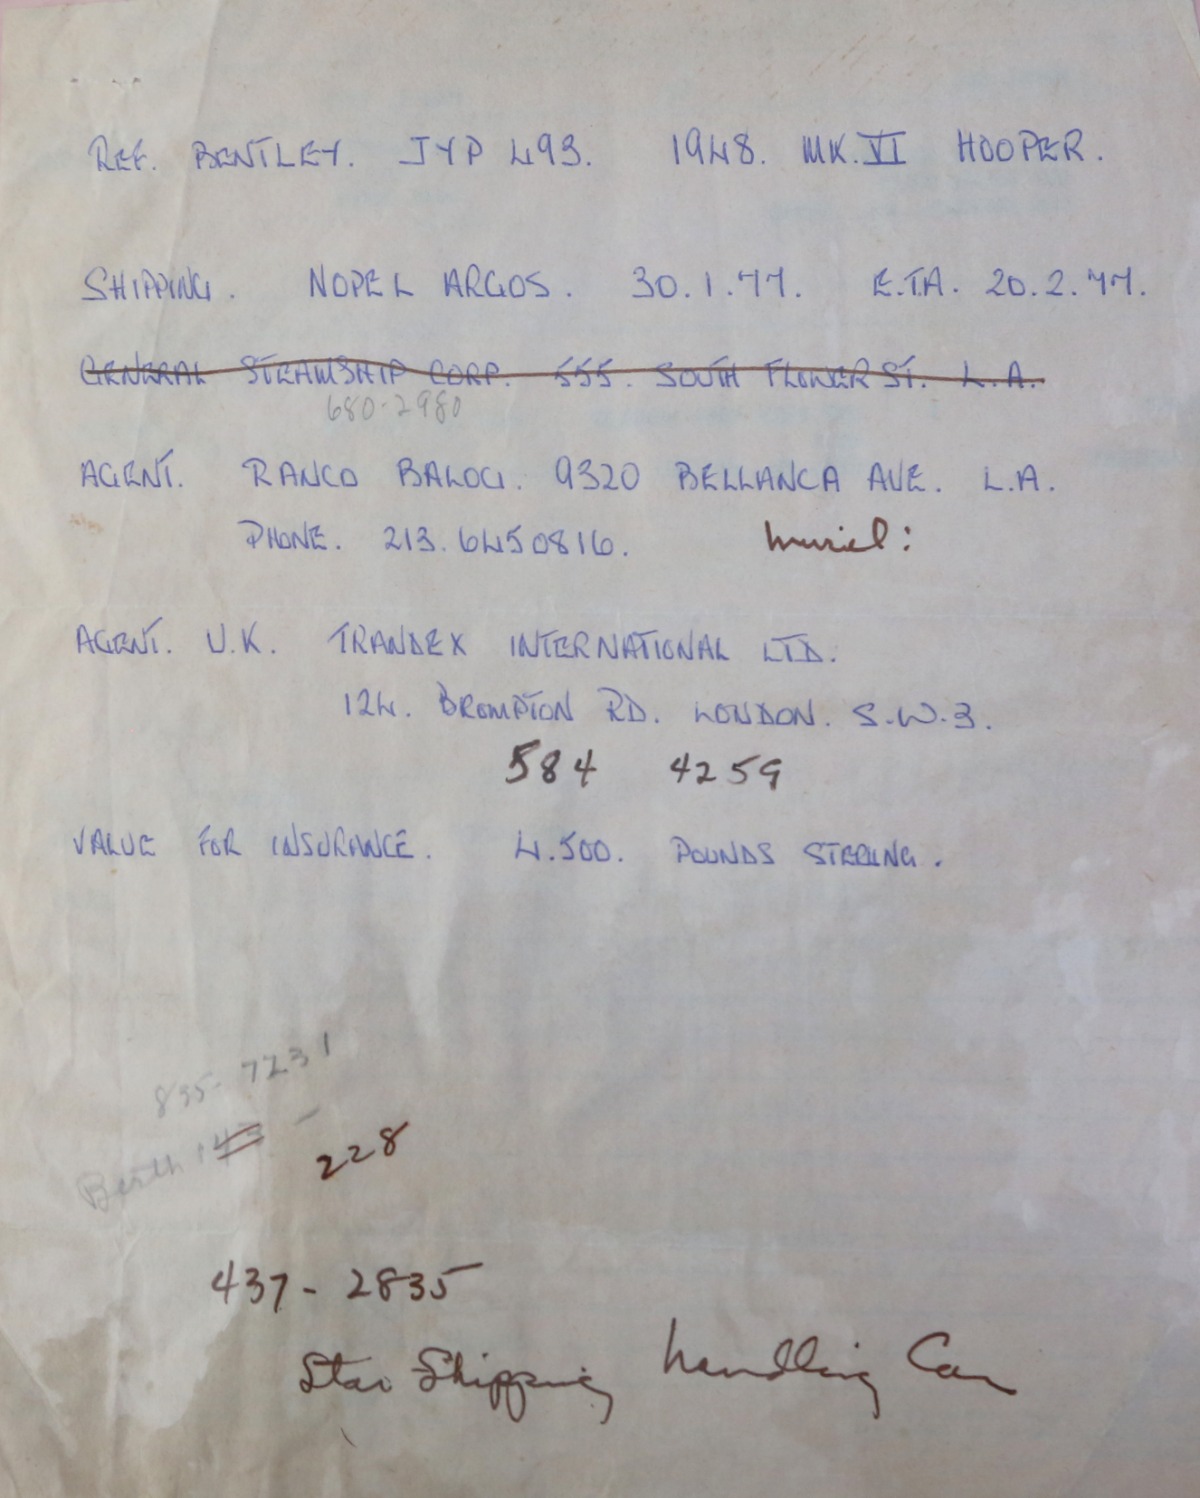 REF. BENTLEY. JYP 493. 1948. MK.VI HOOPER.
SHIPPING. NOPEL ARGOS. 30.1.77. E.T.A. 20.2.77.
GENERAL STEAMSHIP CORP. 555. SOUTH FLOWER ST. L.A.
680-2980
AGENT. RANCO BALOG. 9320 BELLANCA AVE. L.A.
PHONE. 213.6450816. Muriel:
AGENT. U.K. TRANDEX INTERNATIONAL LTD.
124. BROMPTON RD. LONDON. S.W.3.
584 4259
VALUE FOR INSURANCE. 4.500. POUNDS STERLING.
835-7231
Berth 143 - 228
437-2835
Star Shipping handling Car